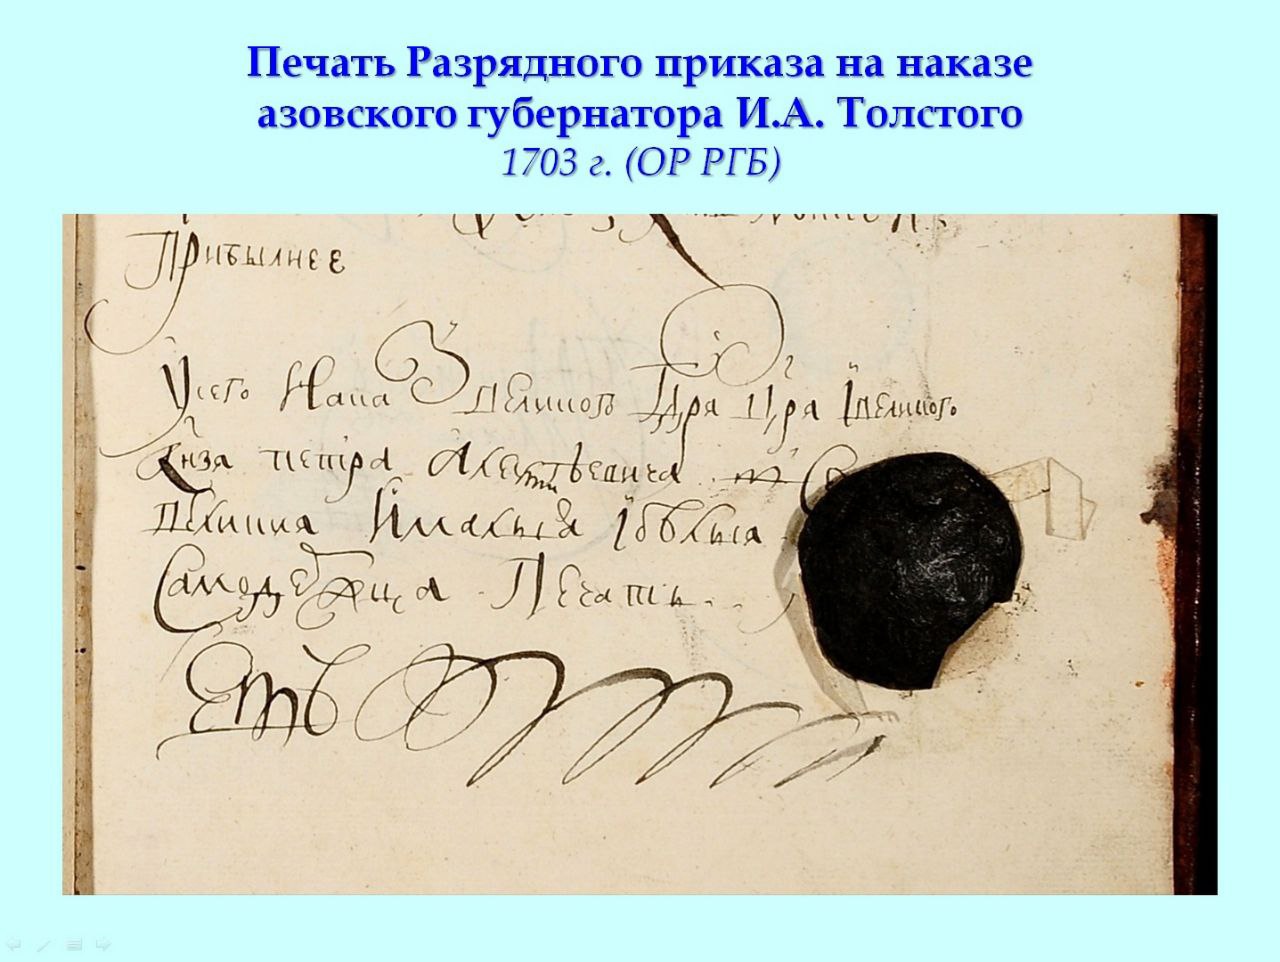 Печать Разрядного приказа на наказе
азовского губернатора И.А. Толстого
1703 г. (ОР РГБ)
Прибылнее
У сего Наказ Великог Гдря Цря Iвеликого
Кнзя петра Алеѯѣевича
Великия Iмалыя Iбѣлыя
Самодержца Печать